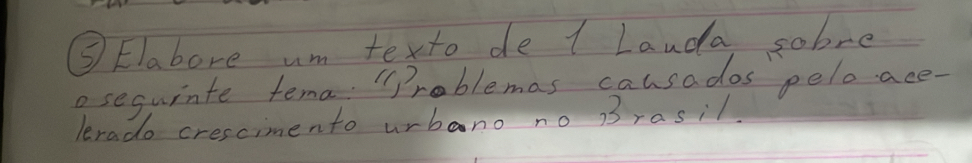 ⑤ Elabore um texto de 1 Lauda sobre
o seguinte tema: "Problemas causados pelo ace-
lerado crescimento urbano no Brasil.